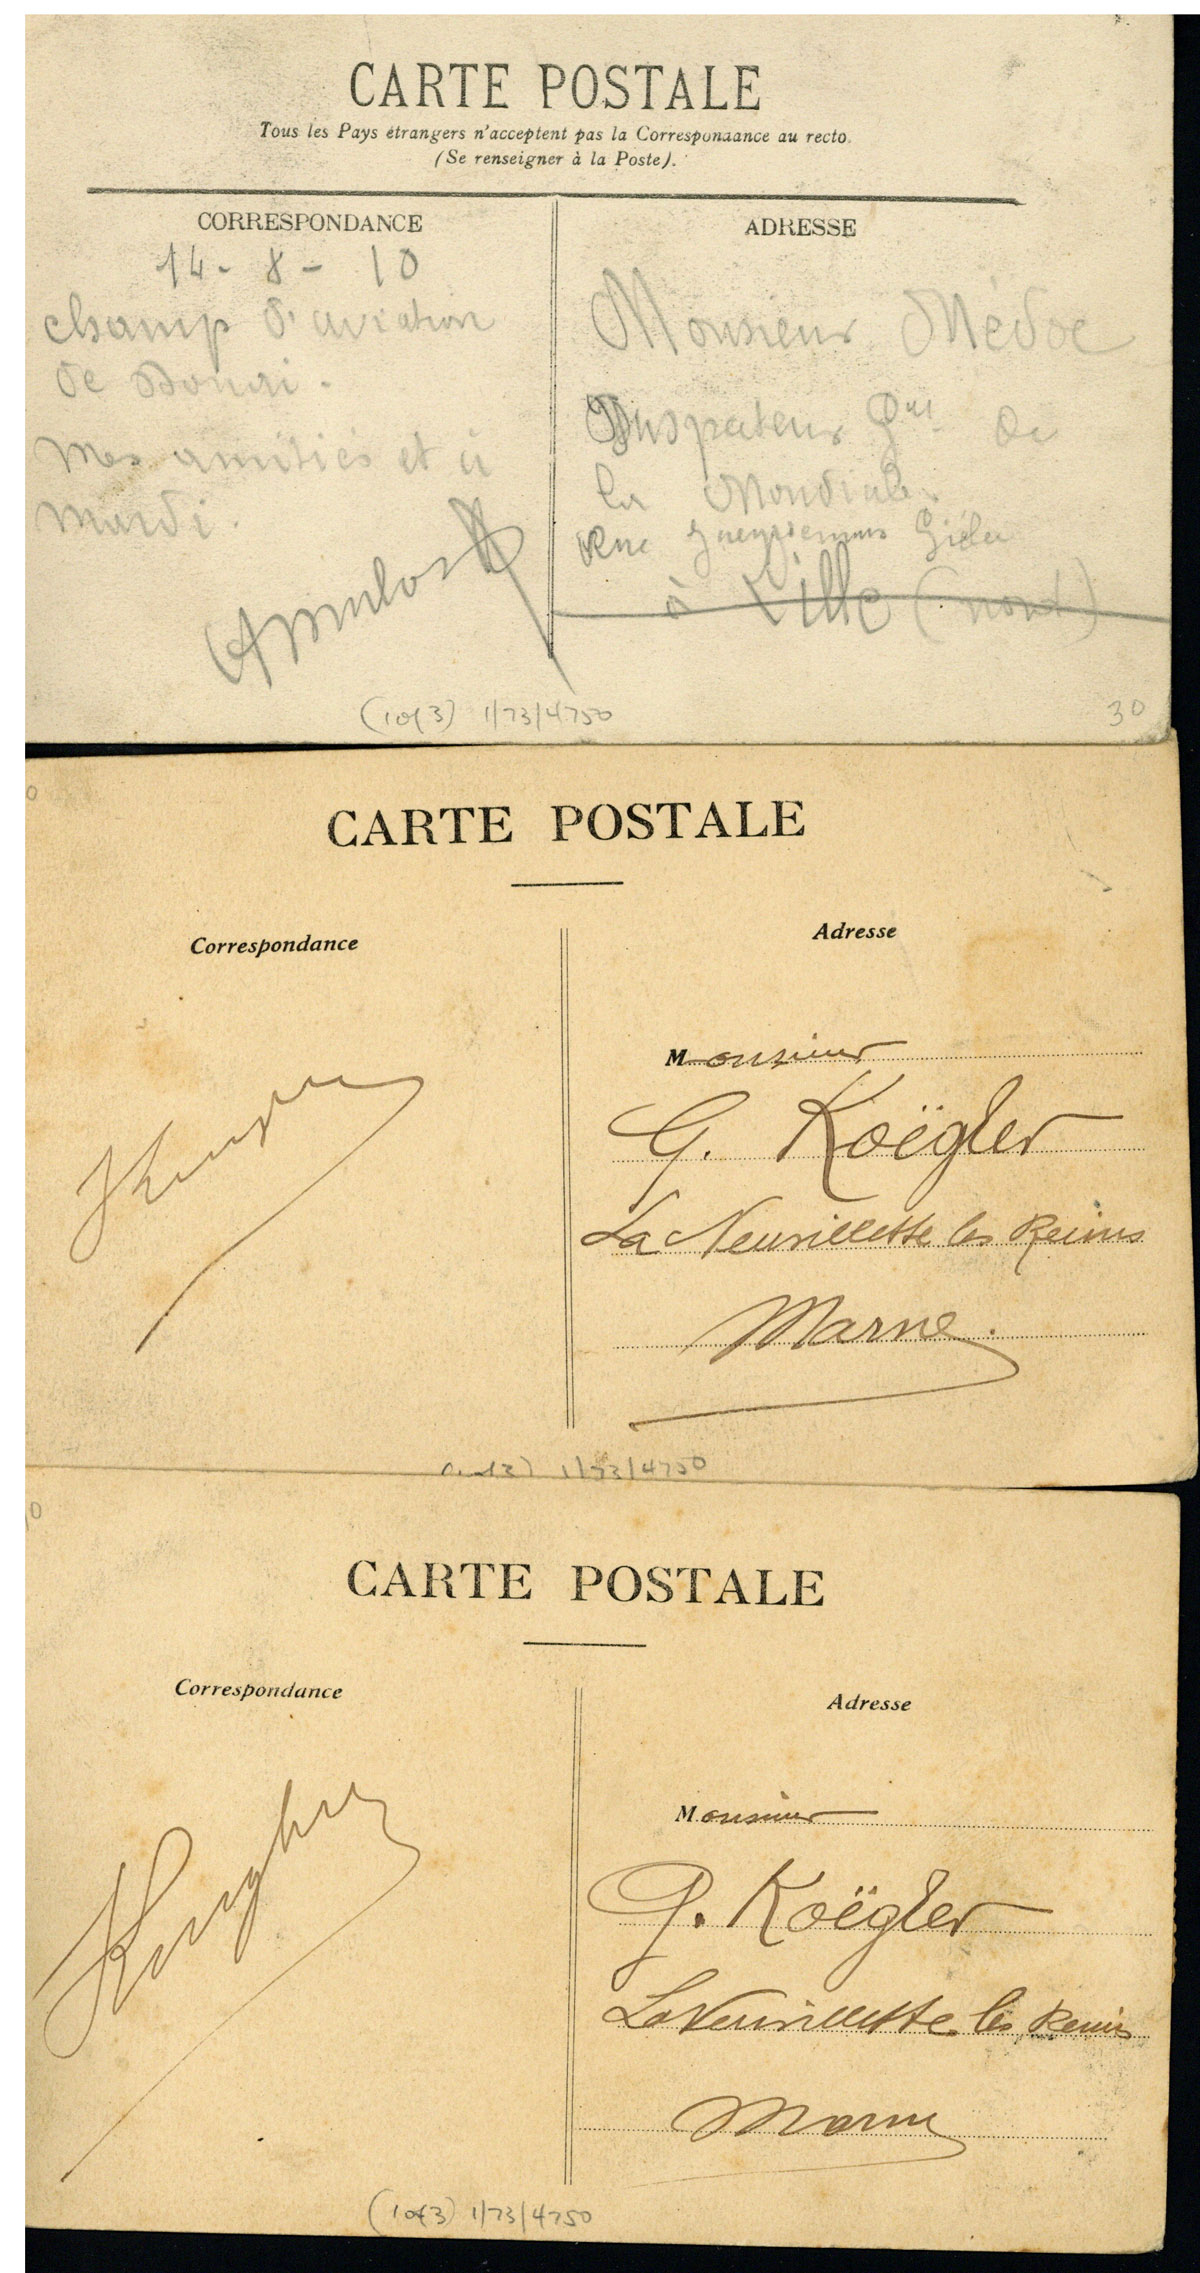 CARTE POSTALE
Tous les Pays étrangers n'acceptent pas la Correspondance au recto.
(Se renseigner à la Poste).
CORRESPONDANCE
14 - 8 - 10
champ d'aviation
de Douai.
Mes amitiés et à
mardi.
ADRESSE
Monsieur Médoc
Inspecteur Gal de
la Mondiale.
Rue
à Lille (nord)
(1 of 3) 1/73/4750
30
CARTE POSTALE
Correspondance
Adresse
Monsieur
G. Koëgler
La Neuvillette les Reims
Marne.
(1 of 3) 1/73/4750
CARTE POSTALE
Correspondance
Adresse
Monsieur
G. Koëgler
La Neuvillette les Reims
Marne
(1 of 3) 1/73/4750